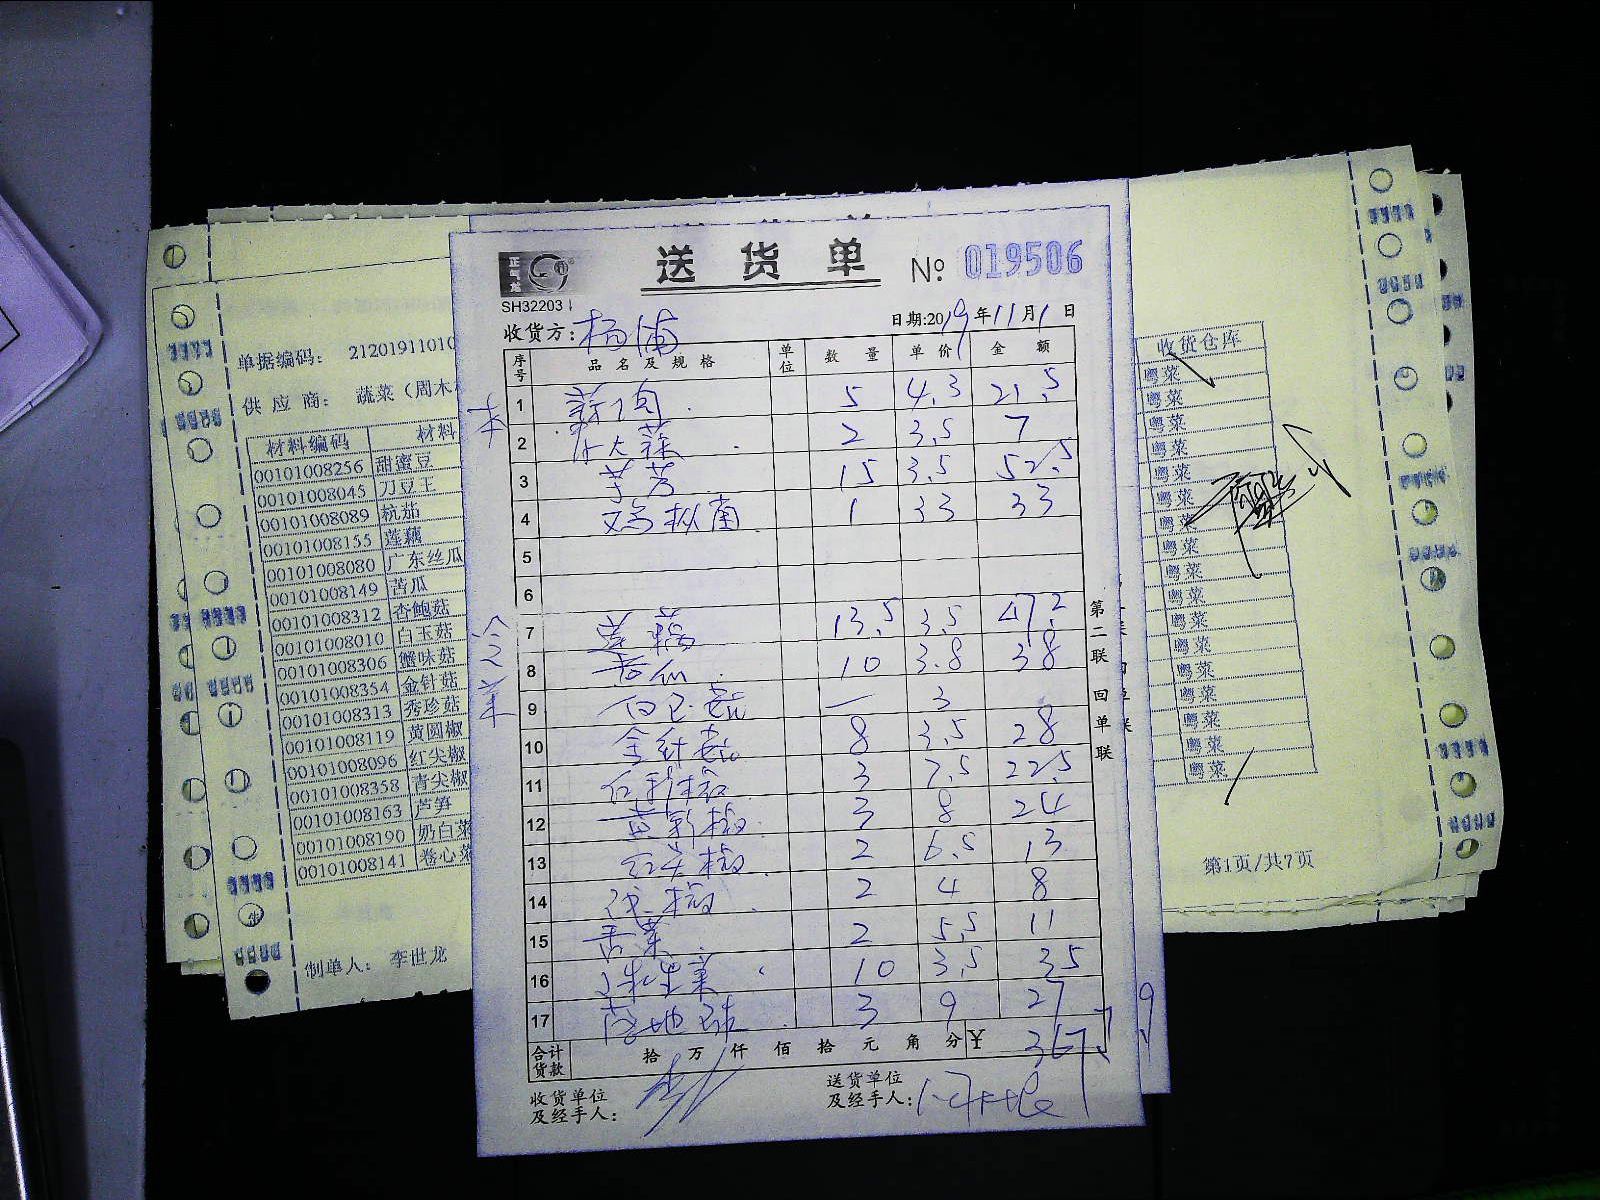 送 货 单
№ 019506
正气龙
SH32203
收货方: 杨浦
日期:2019年11月1日
序号 品名及规格 单位 数量 单价 金额
1 5 4.3 21.5
2 2 3.5 7
3 芋艿 15 3.5 52.5
4 1 33 33
5
6
7 13.5 3.5 47.2
8 苦瓜 10 3.8 38
9 白玉菇 — 3
10 金针菇 8 3.5 28
11 红彩椒 3 7.5 22.5
12 黄彩椒 3 8 24
13 红尖椒 2 6.5 13
14 2 4 8
15 香菜 2 5.5 11
16 10 3.5 35
17 3 9 27
合计货款 拾 万 仟 佰 拾 元 角 分 ¥ 367.7
收货单位及经手人:
送货单位及经手人:
第二联 回单联
单据编码: 21201911010
供应商: 蔬菜（周木
材料编码 材料
00101008256 甜蜜豆
00101008045 刀豆王
00101008089 杭茄
00101008155 莲藕
00101008080 广东丝瓜
00101008149 苦瓜
00101008312 杏鲍菇
00101008010 白玉菇
00101008306 蟹味菇
00101008354 金针菇
00101008313 秀珍菇
00101008119 黄圆椒
00101008096 红尖椒
00101008358 青尖椒
00101008163 芦笋
00101008190 奶白菜
00101008141 卷心菜
制单人: 李世龙
收货仓库
粤菜
粤菜
粤菜
粤菜
粤菜
粤菜
粤菜
粤菜
粤菜
粤菜
粤菜
粤菜
粤菜
粤菜
粤菜
粤菜
粤菜
第1页/共7页